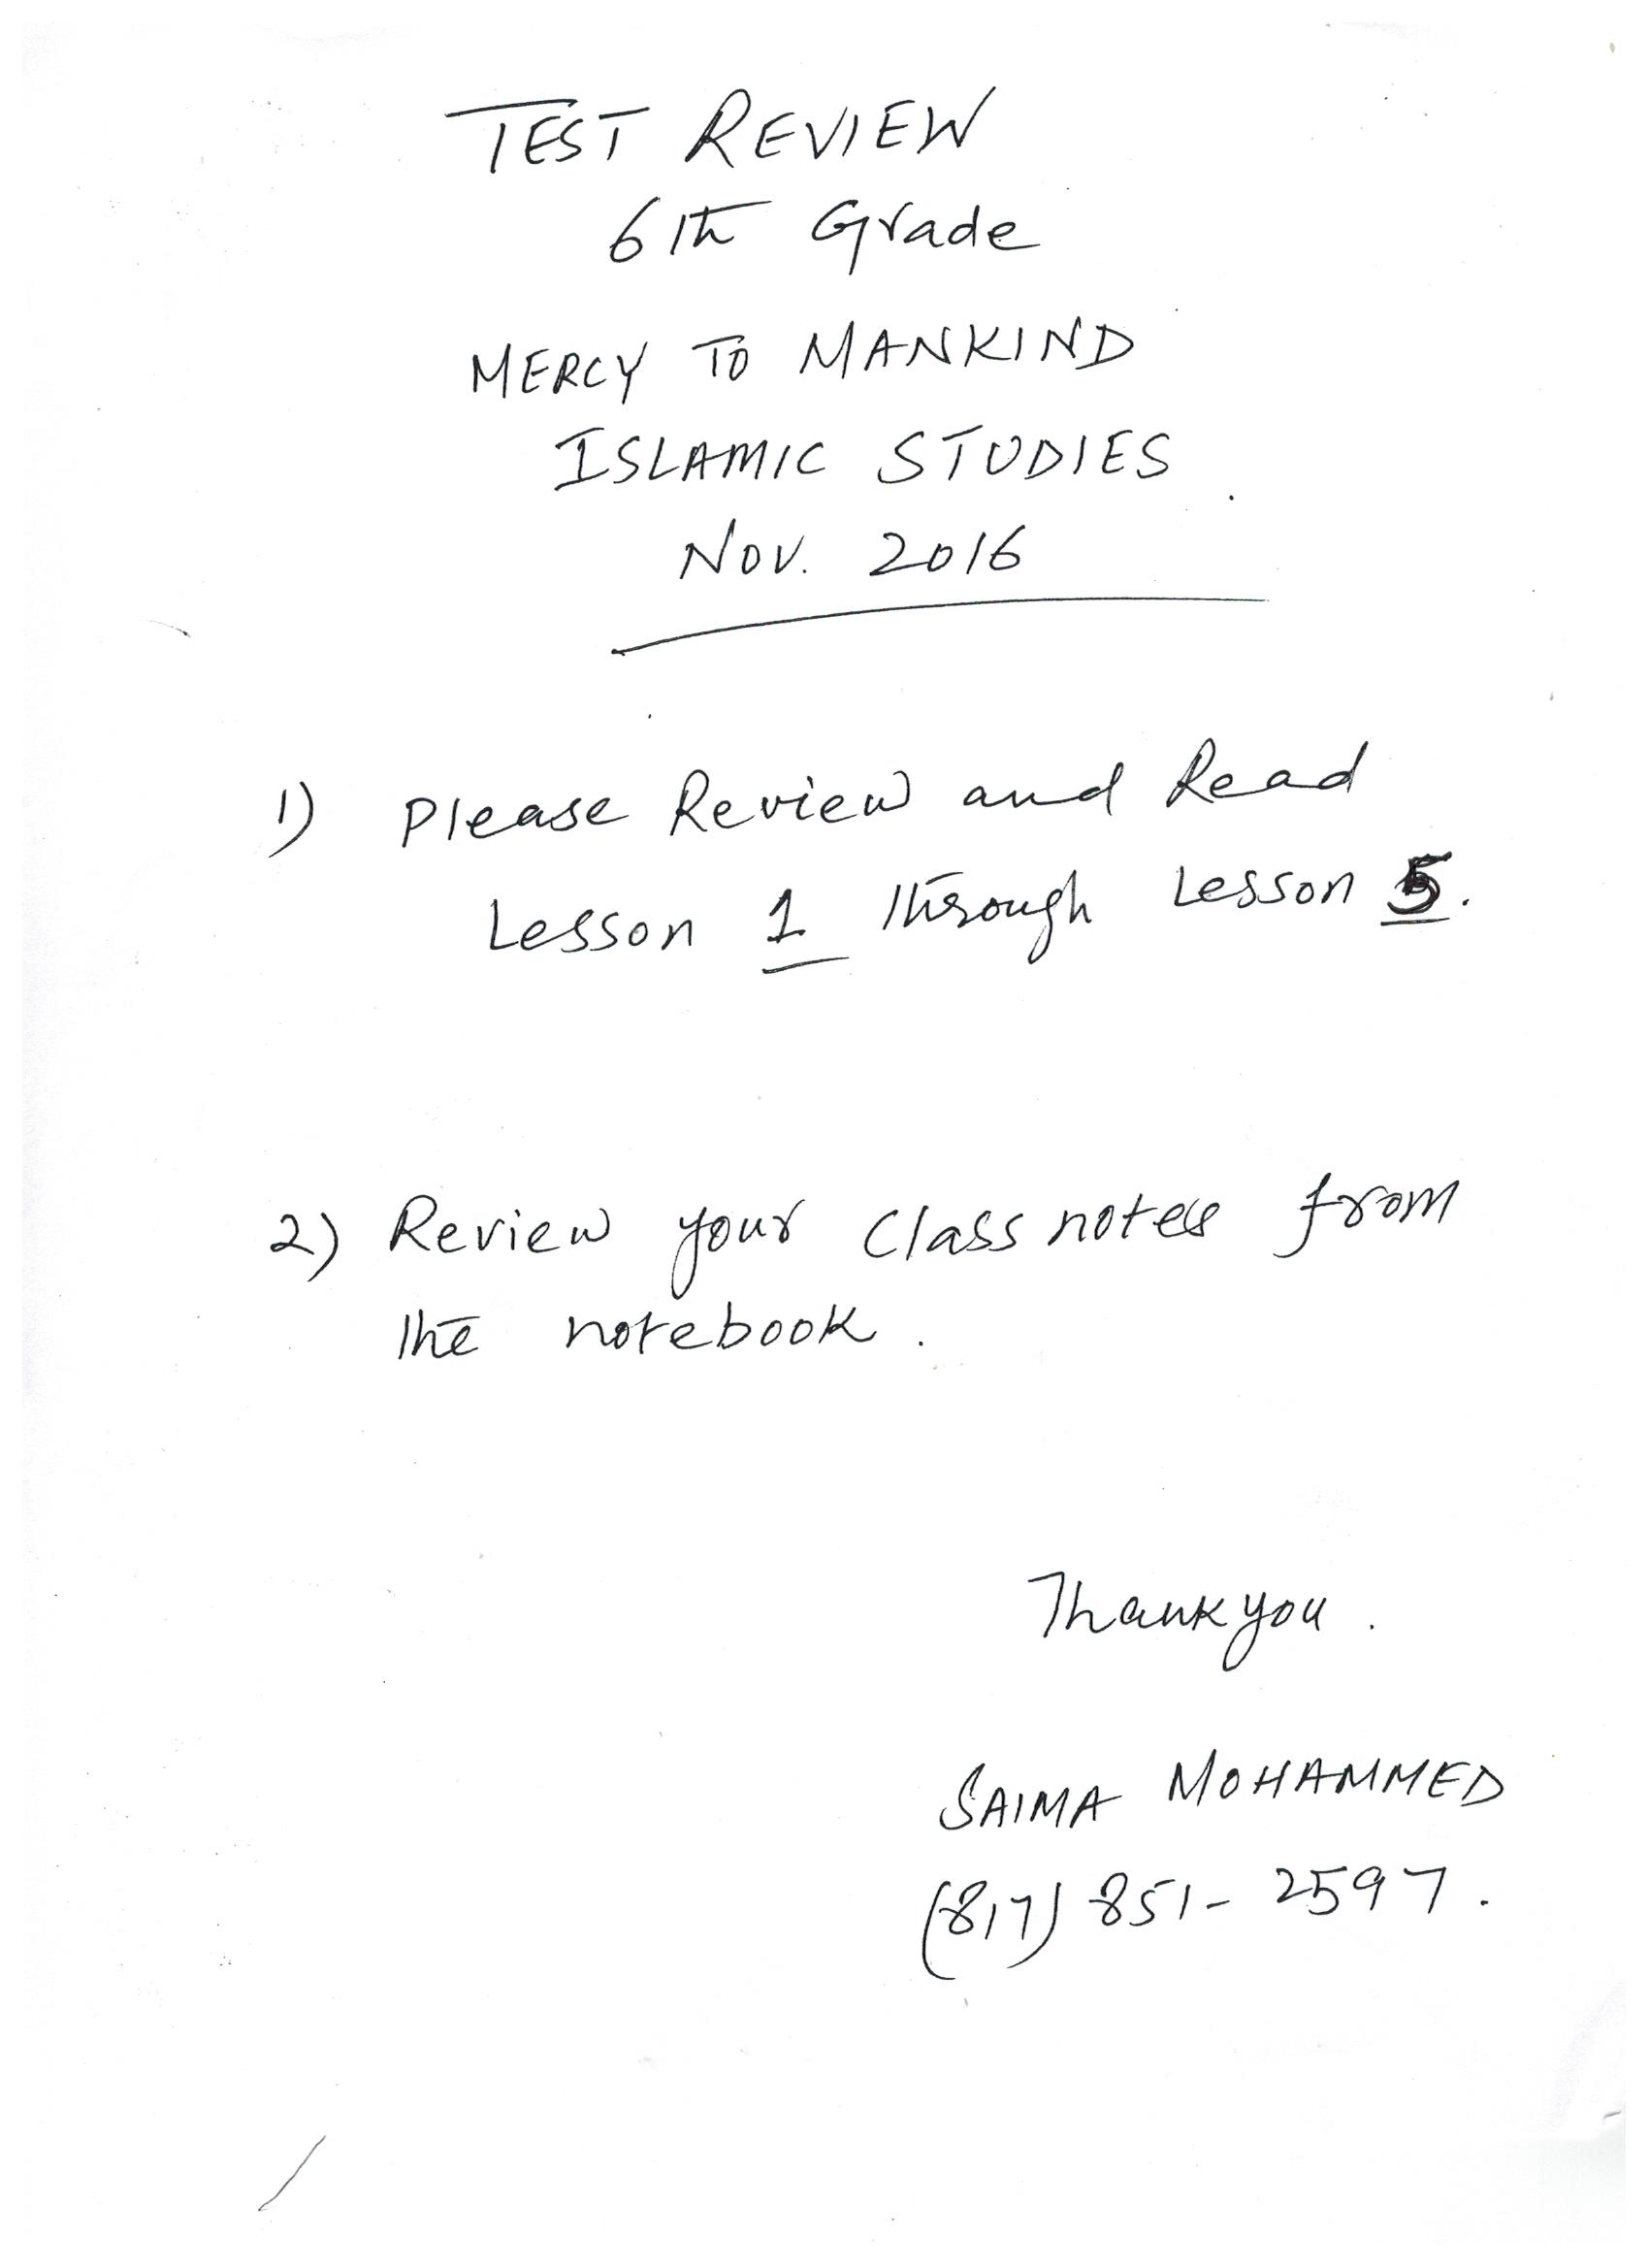 TEST REVIEW
6th Grade
MERCY TO MANKIND
ISLAMIC STUDIES
NOV. 2016
1) Please Review and Read
Lesson 1 through Lesson 5.
2) Review your Class notes from
the notebook.
Thank you.
SAIMA MOHAMMED
(817) 851-2597.